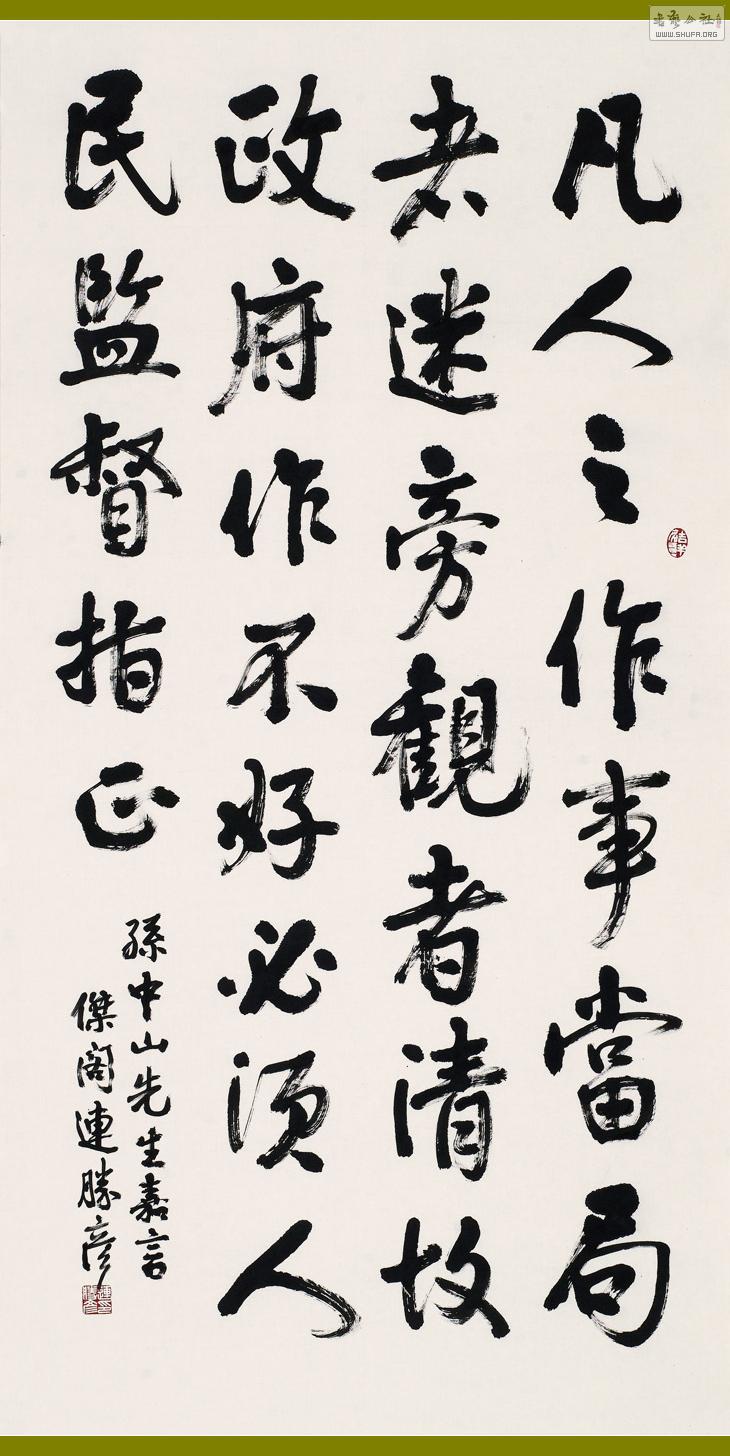 凡人之作事當局
者迷旁觀者清故
政府作不好必須人
民監督指正
孫中山先生嘉言
傑閣連勝彥
WWW.SHUFA.ORG